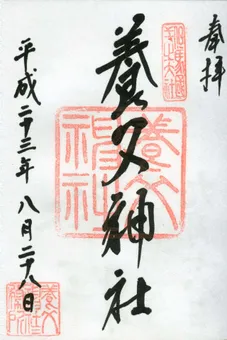 奉拝
養父神社
平成二十三年八月二十八日
養父神社